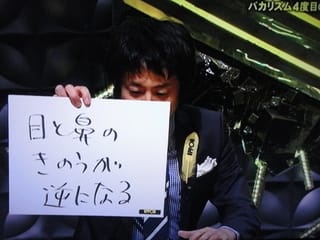 バカリズム4度目の
目と鼻の
きのうが
逆になる
IPPON
IPPON